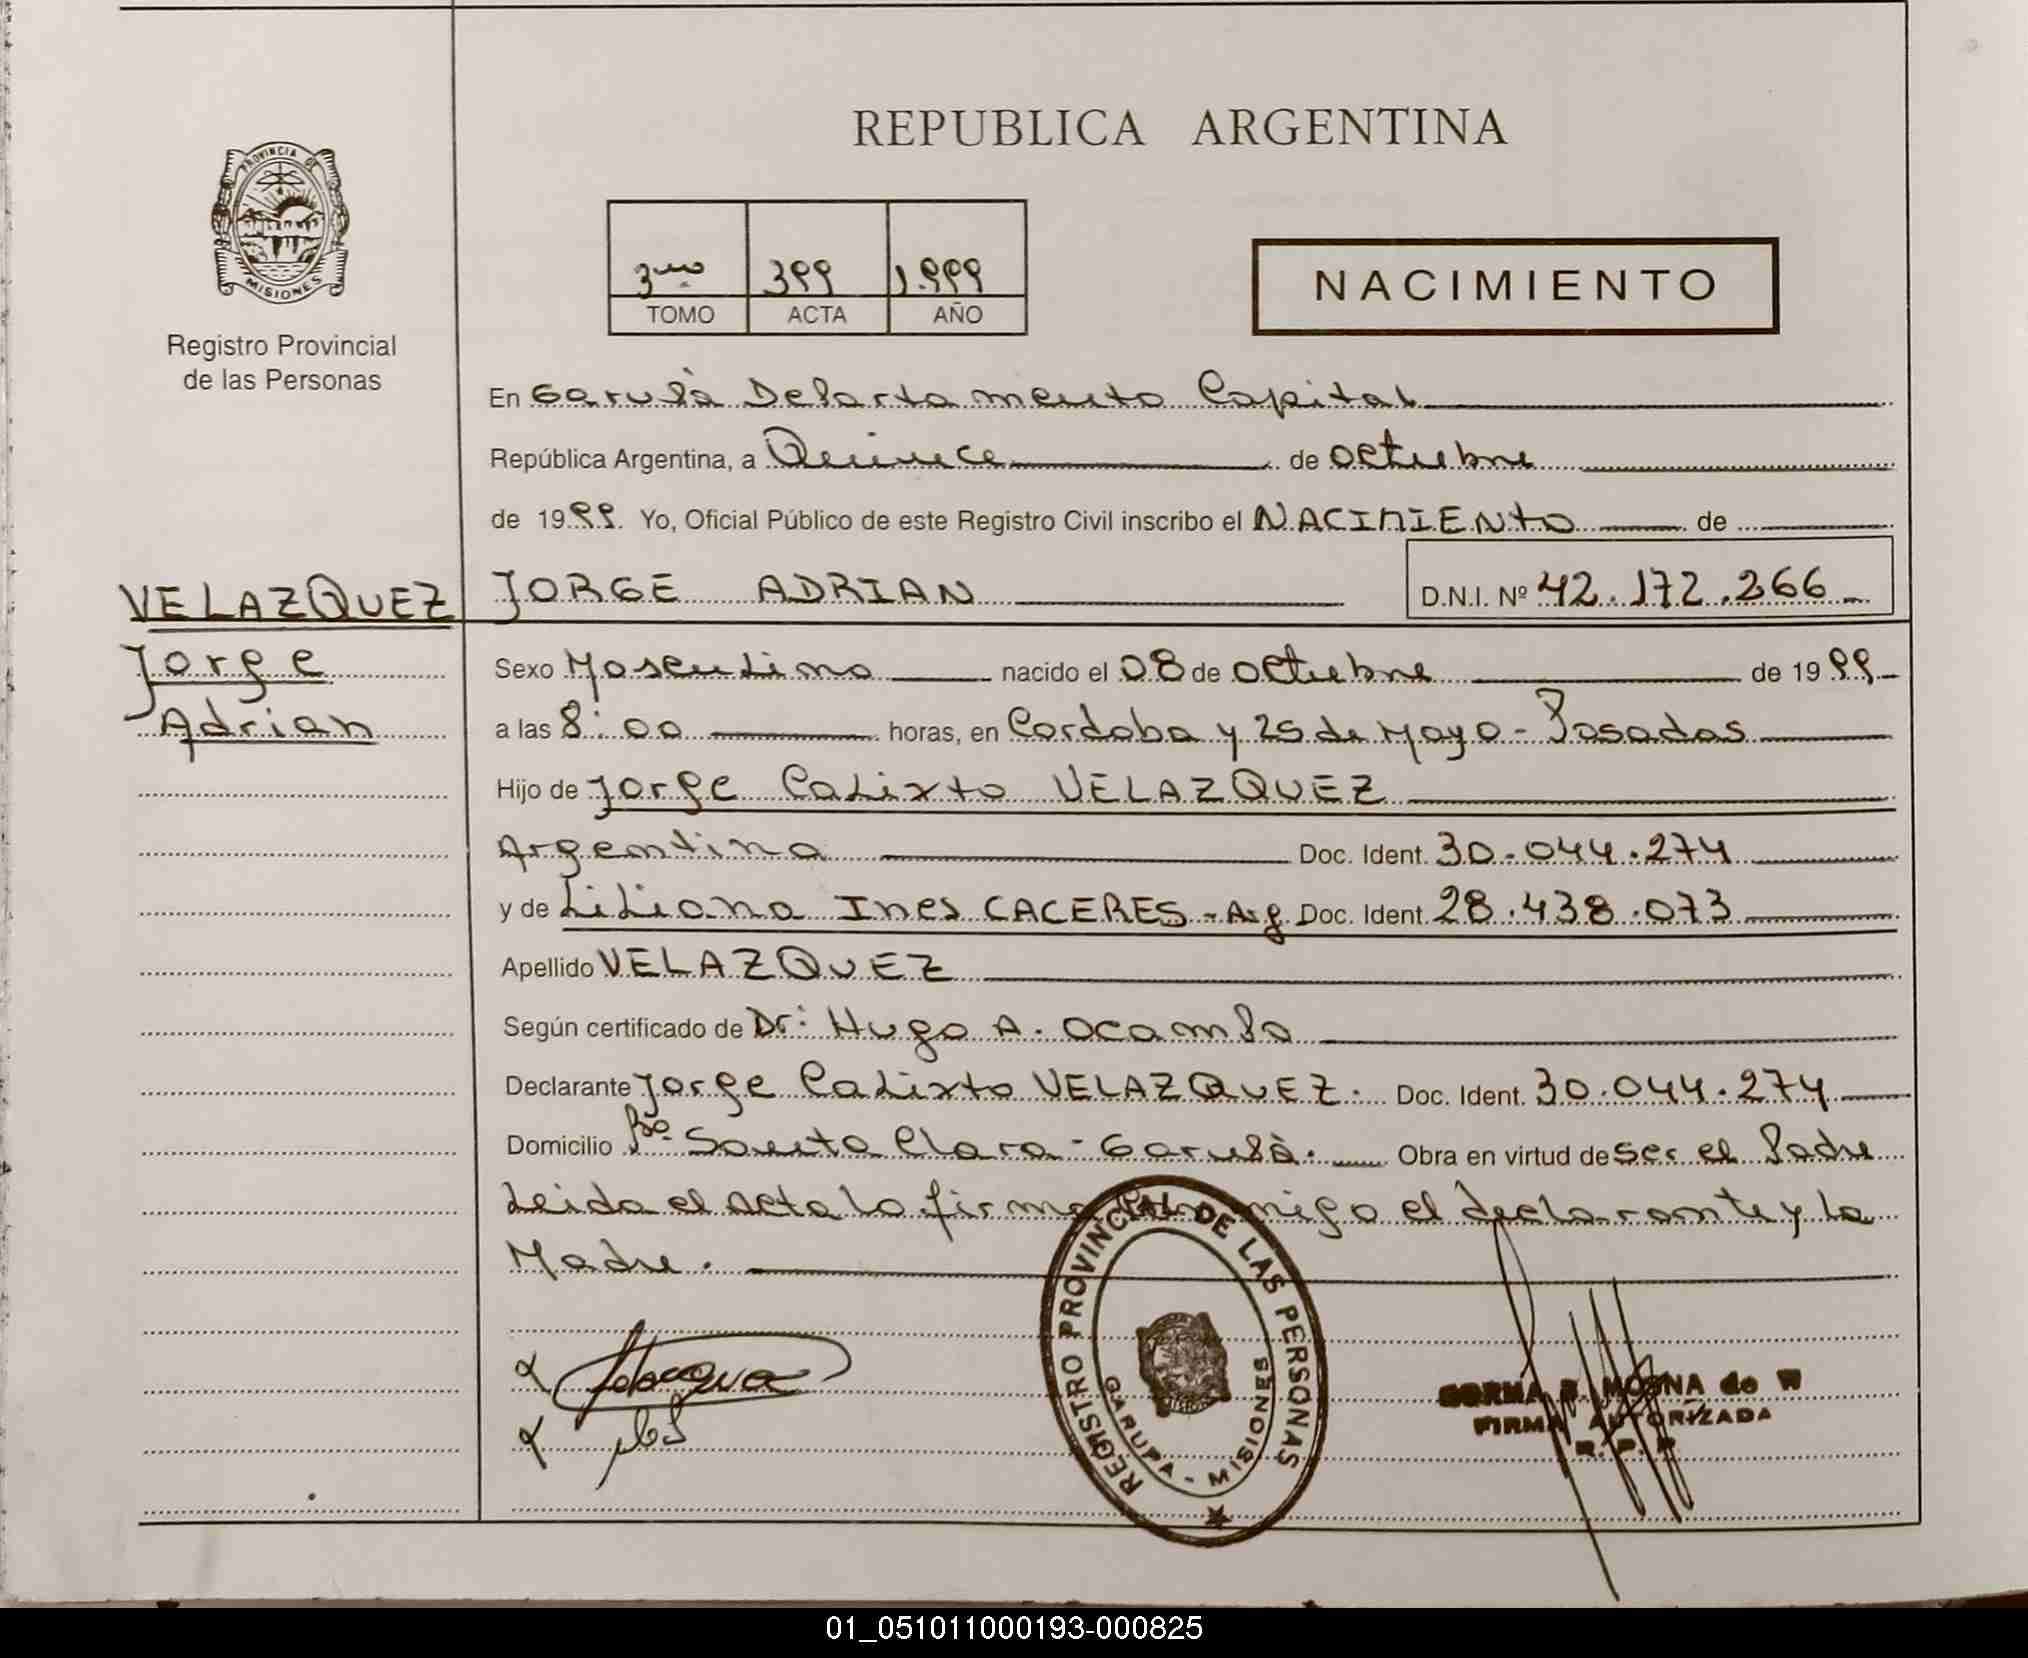 REPUBLICA ARGENTINA
PROVINCIA DE
MISIONES
Registro Provincial
de las Personas
3ero 399 1.999
TOMO ACTA AÑO
NACIMIENTO
En Garupà Departamento Capital
República Argentina, a Quince de octubre
de 1999. Yo, Oficial Público de este Registro Civil inscribo el NACIMIENto de
VELAZQUEZ JORGE ADRIAN D.N.I. Nº 42.172.266
Jorge
Adrian
Sexo Masculino nacido el 08 de octubre de 1999
a las 8:00 horas, en Cordoba y 25 de Mayo - Posadas
Hijo de Jorge Calixto VELAZQUEZ
Argentina Doc. Ident. 30.044.274
y de Liliana Ines CACERES - Arg Doc. Ident. 28.438.073
Apellido VELAZQUEZ
Según certificado de Dr: Hugo A. Ocampo
Declarante Jorge Calixto VELAZQUEZ. Doc. Ident. 30.044.274
Domicilio Bº Santa Clara - Garupà. Obra en virtud de ser el Padre
Leida el acta la firma conmigo el declarante y la
Madre.
REGISTRO PROVINCIAL DE LAS PERSONAS
GARUPA - MISIONES
MOSNA de W
FIRMA AUTORIZADA
R. P. P.
01_051011000193-000825